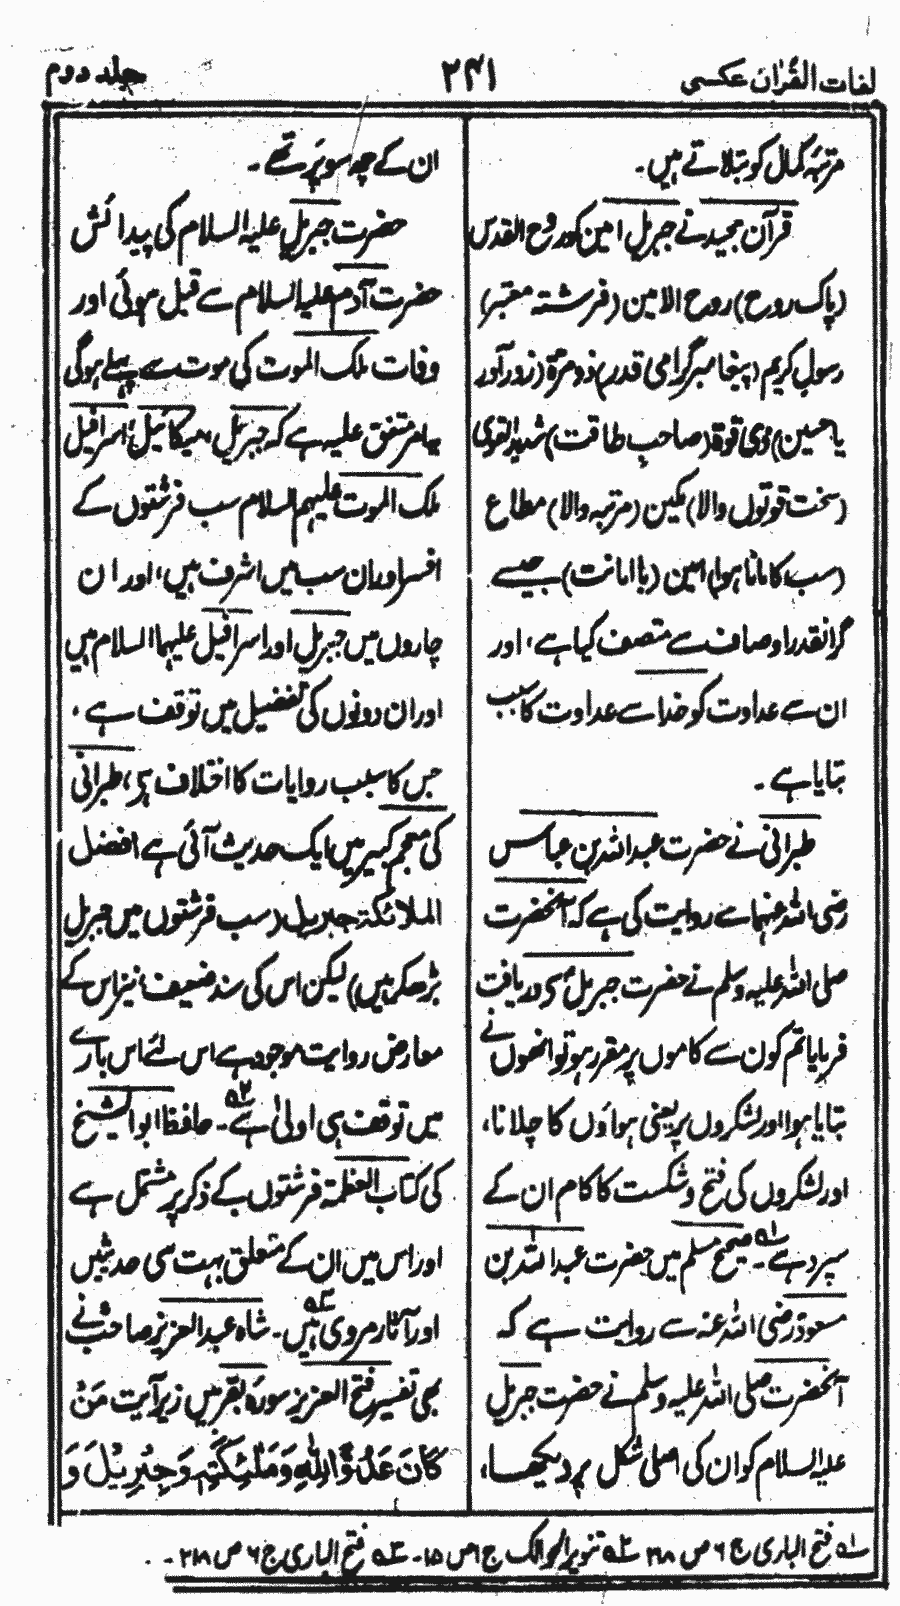 لغات القُرآن عکسی
۲۴۱
جلد دوم
مرتبۂ کمال کو بتلاتے ہیں۔
قرآن مجید نے جبریلِ امین کو روح القدس
(پاک روح) روح الامین (فرشتہ معتبر)
رسولِ کریم (پیغامبر گرامی قدر) ذو مرۃ (زور آور
یا حسین) ذی قوۃ (صاحبِ طاقت) شدید القویٰ
(سخت قوتوں والا) مکین (مرتبہ والا) مطاع
(سب کا مانا ہوا) امین (با امانت) جیسے
گرانقدر اوصاف سے متصف کیا ہے، اور
ان سے عداوت کو خدا سے عداوت کا سبب
بتایا ہے۔
طبرانی نے حضرت عبداللہ بن عباس
رضی اللہ عنہما سے روایت کی ہے کہ آنحضرت
صلی اللہ علیہ وسلم نے حضرت جبریل سے دریافت
فرمایا تم کون سے کاموں پر مقرر ہو تو انھوں نے
بتایا ہوا اور لشکروں پر یعنی ہواؤں کا چلانا،
اور لشکروں کی فتح و شکست کا کام ان کے
سپرد ہے۔ ۱ھ صحیح مسلم میں حضرت عبداللہ بن
مسعود رضی اللہ عنہ سے روایت ہے کہ
آنحضرت صلی اللہ علیہ وسلم نے حضرت جبریل
علیہ السلام کو ان کی اصلی شکل پر دیکھا،
ان کے چھ سو پَر تھے۔
حضرت جبریل علیہ السلام کی پیدائش
حضرت آدم علیہ السلام سے قبل ہوئی اور
وفات ملک الموت کی موت سے پہلے ہوگی
یہ امر متفق علیہ ہے کہ جبریل، میکائیل، اسرافیل
ملک الموت علیہم السلام سب فرشتوں کے
افسر اور ان سب میں اشرف ہیں، اور ان
چاروں میں جبریل اور اسرافیل علیہما السلام ہیں
اور ان دونوں کی تفضیل میں توقف ہے،
جس کا سبب روایات کا اختلاف ہے، طبرانی
کی معجم کبیر میں ایک حدیث آئی ہے افضل
الملائکۃ جبریل (سب فرشتوں میں جبریل
بڑھکر ہیں) لیکن اس کی سند ضعیف، نیز اس کے
معارض روایت موجود ہے اس لئے اس بارے
میں توقف ہی اولیٰ ہے۔ ۲ھ حافظ ابوالشیخ
کی کتاب العظمۃ فرشتوں کے ذکر پر مشتمل ہے
اور اس میں ان کے متعلق بہت سی حدیثیں
اور آثار مروی ہیں۔ ۳ھ شاہ عبدالعزیز صاحب نے
بھی تفسیر فتح العزیز سورۂ بقر میں زیر آیت مَنْ
كَانَ عَدُوًّا لِلّٰهِ وَمَلٰئِكَتِهٖ وَجِبْرِيْلَ وَ
۱ھ فتح الباری ج ۶ ص ۲۱۸ ۲ھ تنویر الحوالک ج ۱ ص ۱۵۔ ۳ھ فتح الباری ج ۶ ص ۲۱۸۔